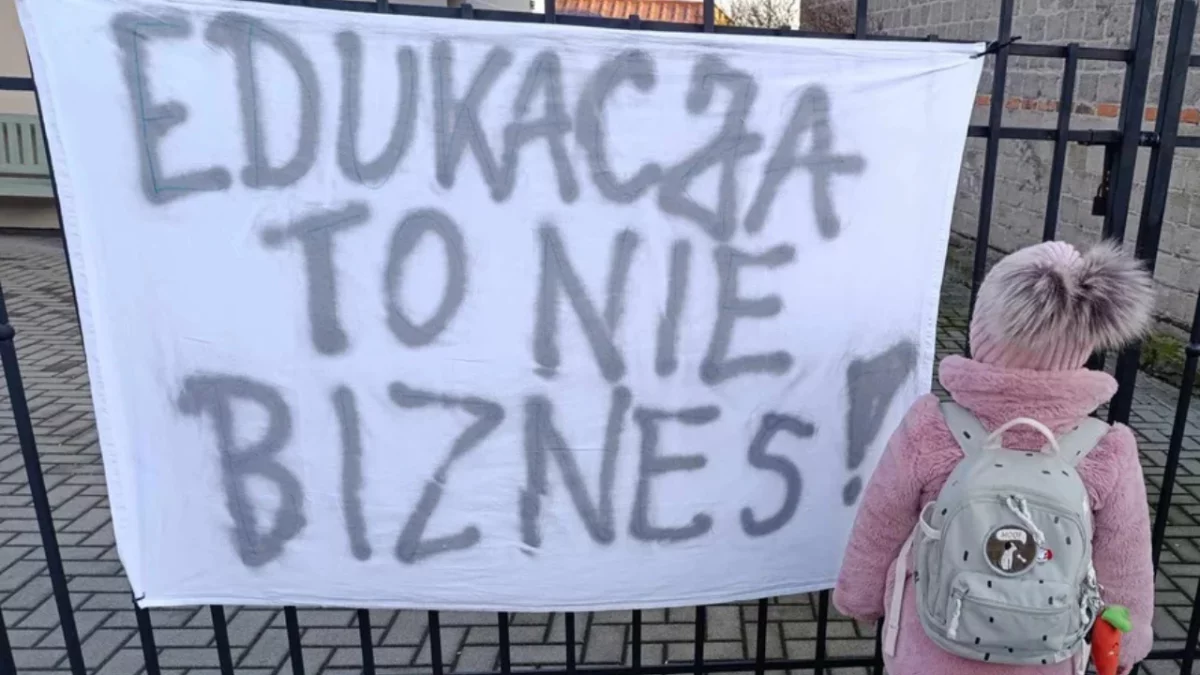 EDUKACJA
TO NIE
BIZNES!